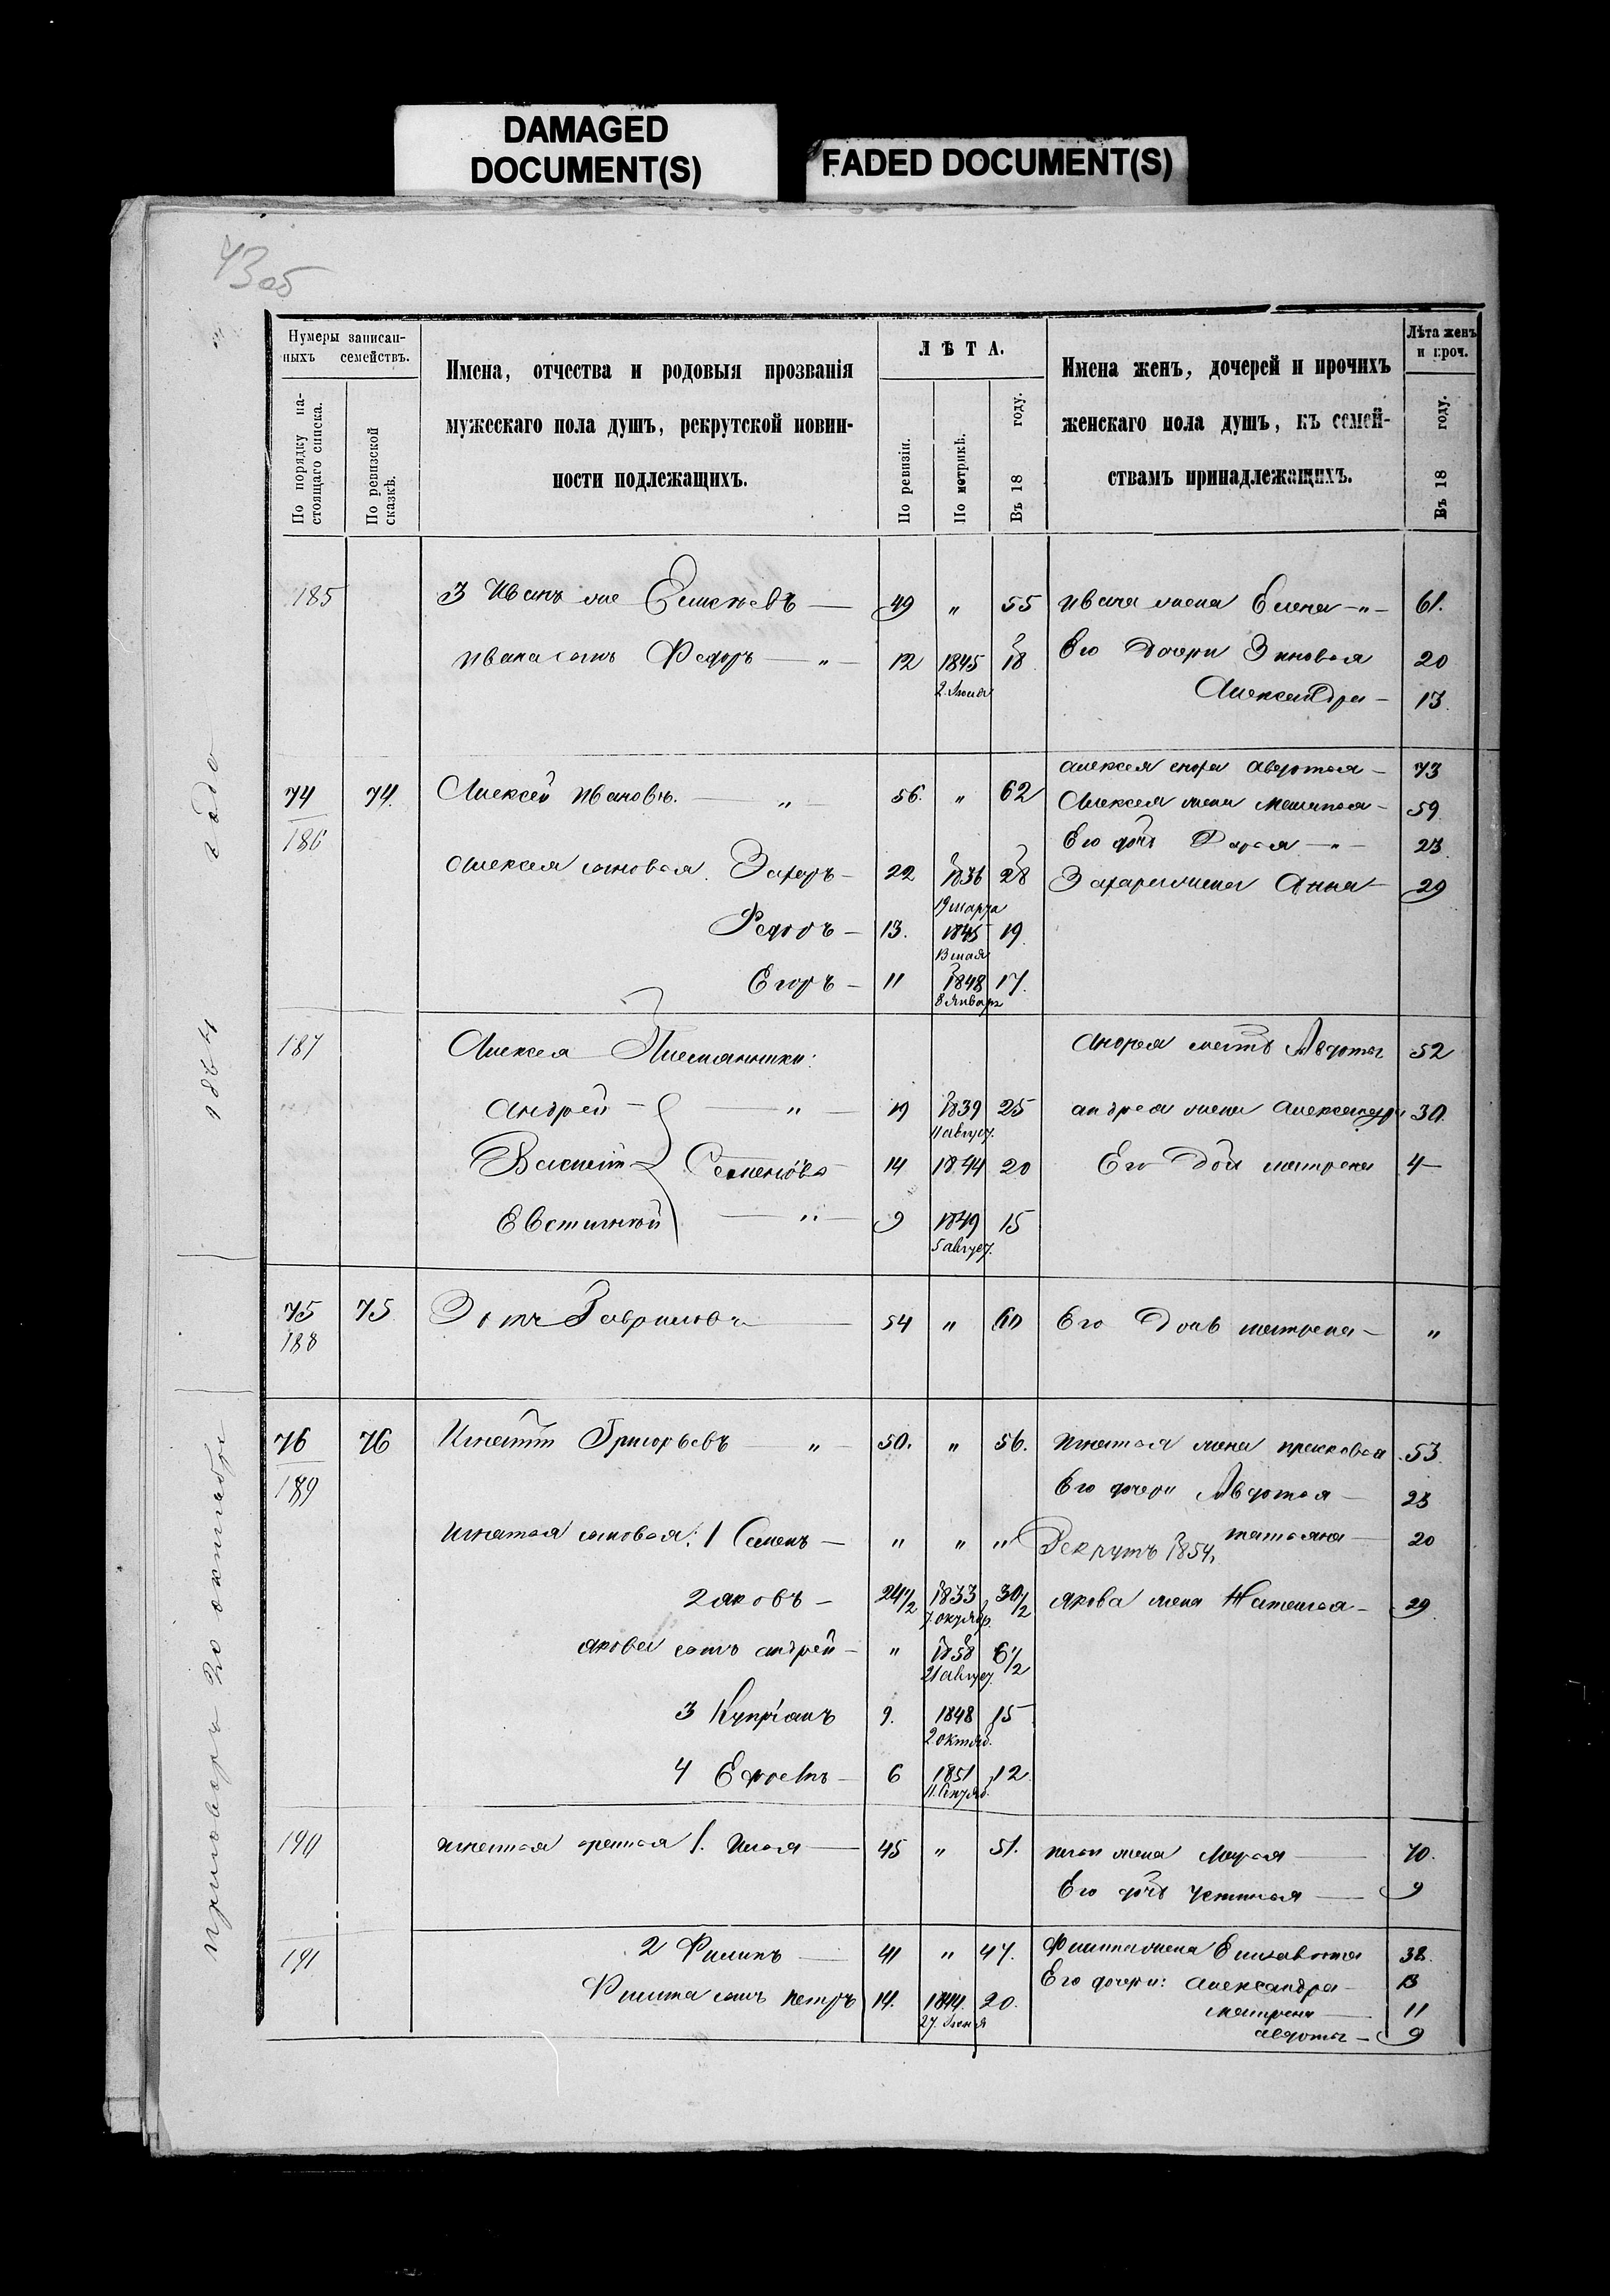 DAMAGED
DOCUMENT(S)
FADED DOCUMENT(S)
43об
Нумеры записан-
ныхъ семействъ.
По порядку на-
стоящаго списка.
По ревизской
сказкѣ.
Имена, отчества и родовыя прозванія
мужескаго пола душъ, рекрутской повин-
ности подлежащихъ.
ЛѢТА.
По ревизіи.
По метрикѣ.
Въ 18 году.
Имена женъ, дочерей и прочихъ
женскаго пола душъ, къ семей-
ствамъ принадлежащихъ.
Лѣта женъ
и проч.
Въ 18 году.
185 3 Иванъ — 49 " 55 Ивана жена Елена — " — 61.
Ивана сынъ Федоръ — " — 12 1845 18 Его дочери Зиновья 20
2. Июня Александра — 13.
Алексея Авдотья — 73
74 74. Алексей Ивановъ. — " 56. " 62 Алексея жена Меланья — 59
186 Его дочь Дарья — " — 23.
Алексея сыновья. Захаръ — 22 1836 28 Захара жена Анна — 29
19 марта
Федоръ — 13. 1845 19.
13 мая
Егоръ — 11 1848 17.
8 Январ
187 Алексея Племянники: Андрея мать Авдотья 52
Андрей — " — 19 1839 25 Андрея жена Александра 30.
11 август.
Василий Семеновы 14 1844 20 Его дочь Матрена 4 —
Евстигней — " — 9 1849 15
5 август.
75 75 Гавриловъ — 54 " 60 Его дочь Матрена — "
188
76 76 Игнатий Григорьевъ — " — 50. " 56. Игнатья жена Прасковья 53.
189 Его дочери Авдотья — 23
Татьяна — 20
Игнатья сыновья: 1 Семенъ — " " " Рекрутъ 1854.
2 Яковъ — 24 1/2 1833 30 1/2 Якова жена Наталья — 29.
7. октяб.
Якова сынъ Андрей — " 1858 6 1/2
21 август.
3 Купріанъ 9. 1848 15
2 октяб.
4 Ефремъ — 6 1851 12
11. Сентяб.
190 Игнатья братья 1. Илья — 45 " 51. Ильи жена Марья — 40.
Его дочь Устинья — 9
191 2 Филипъ — 41 " 47. Филипа жена Елизавета 38.
Филипа сынъ Петръ 14. 1844. 20. Его дочери: Александра — 13
27. Июня Матрена — 11
Авдотья — 9
Приговоръ 20 октября 1864 года